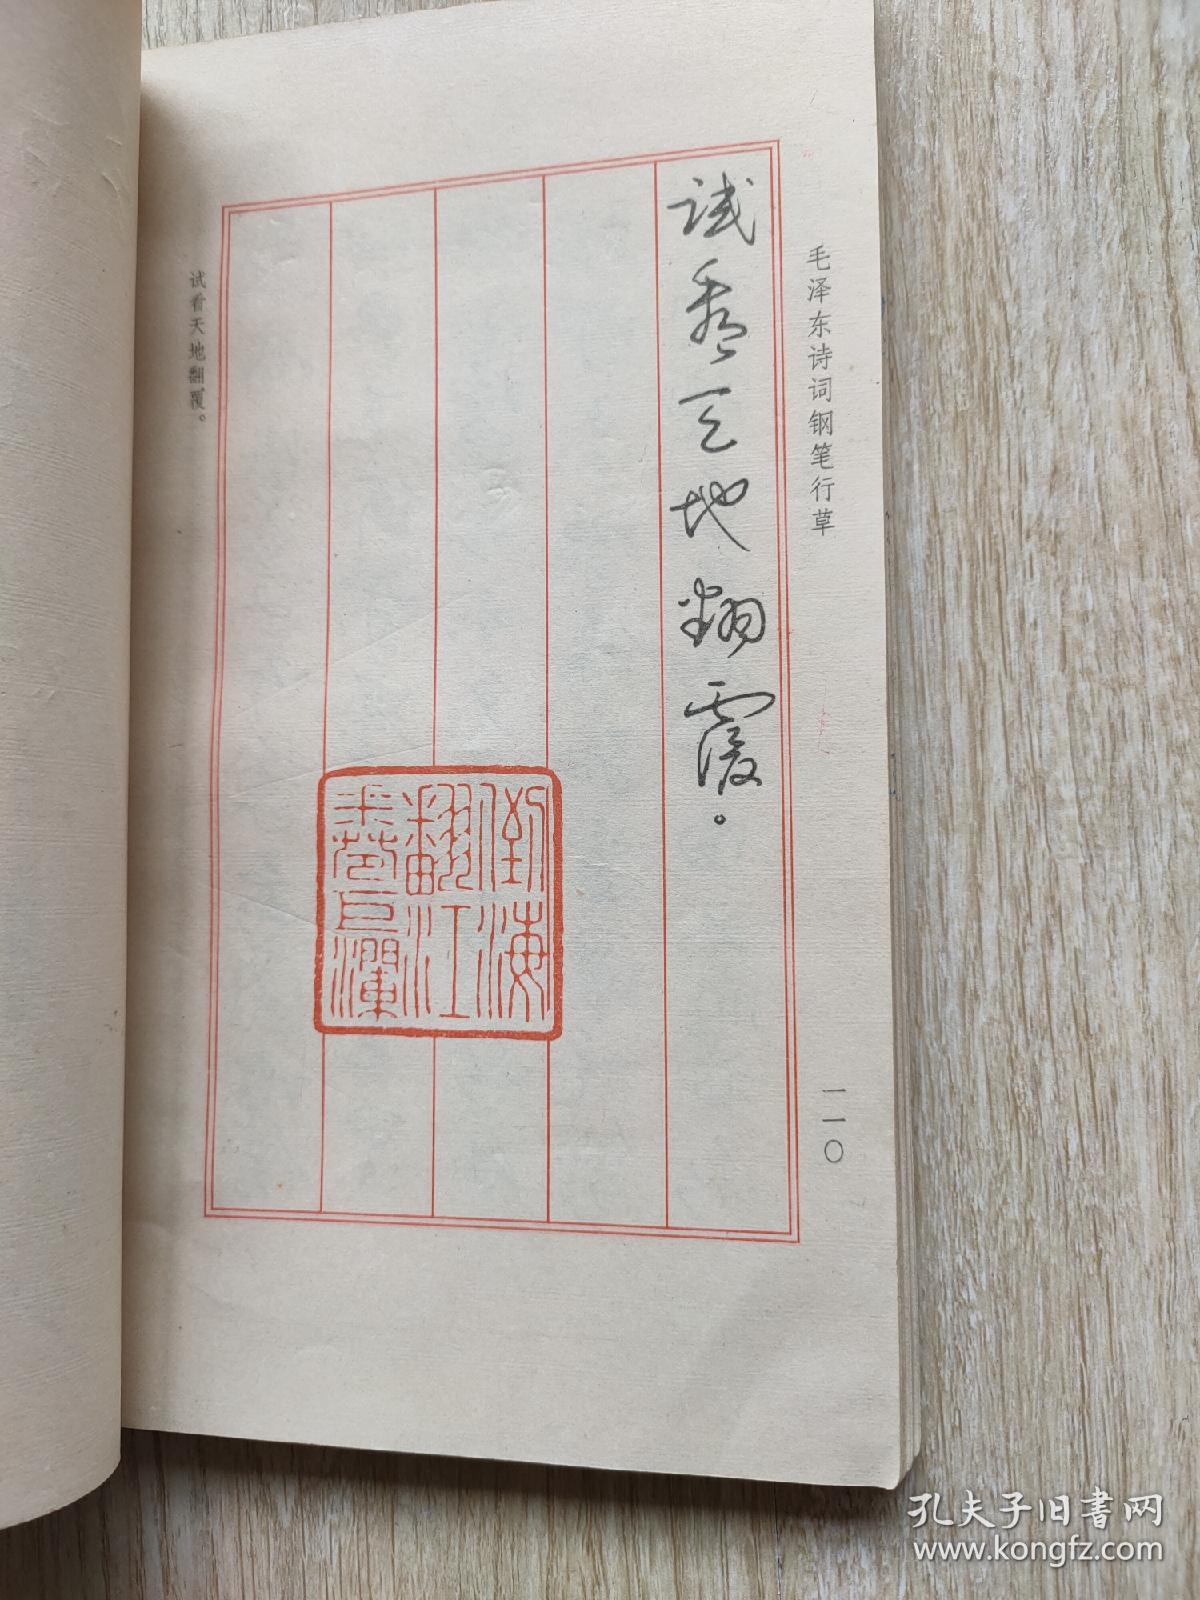 毛泽东诗词钢笔行草
一一〇
试看天地翻覆。
倒海
翻江
卷巨澜
试看天地翻覆。
孔夫子旧书网
www.kongfz.com